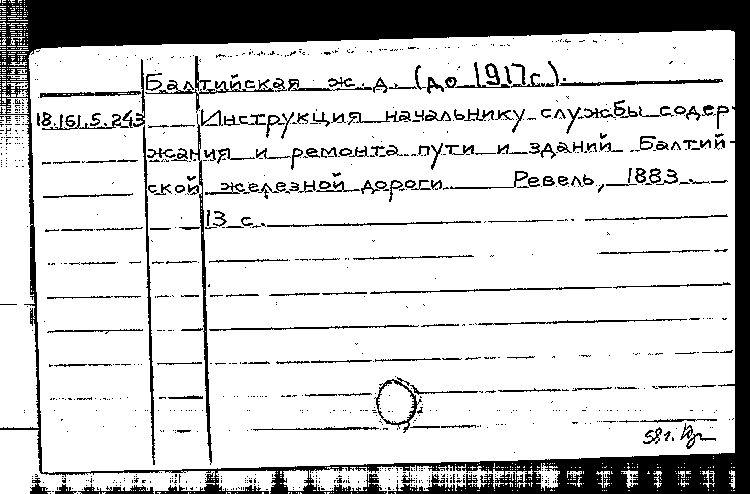 Балтийская ж. д. (до 1917г.).
18.161.5.243 Инструкция начальнику службы содер-
жания и ремонта пути и зданий Балтий-
ской железной дороги Ревель, 1883.
13 с.
58г.